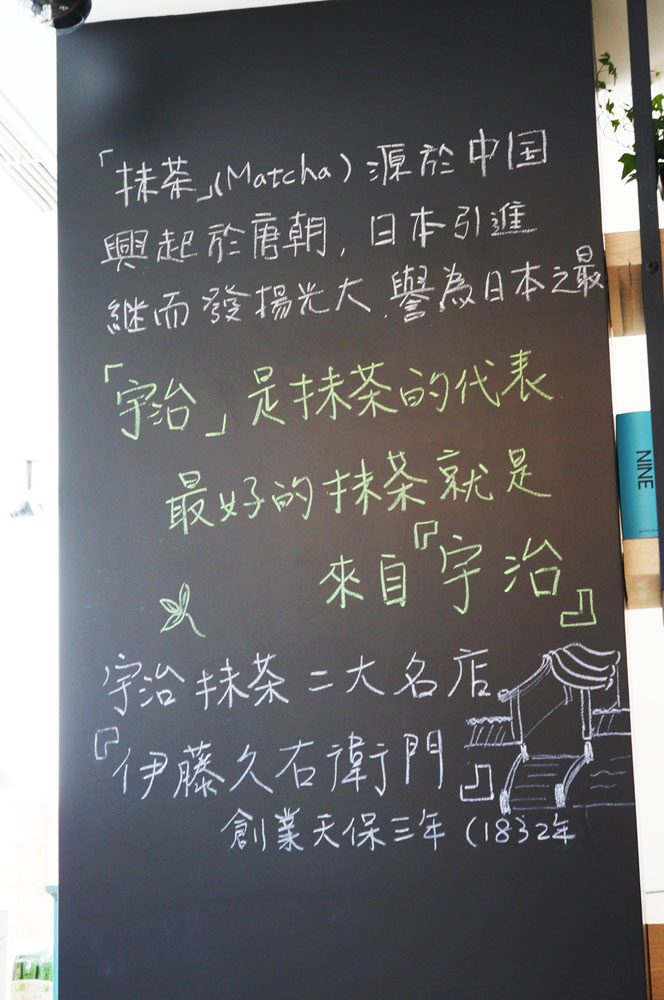 「抹茶」(Matcha) 源於中国
興起於唐朝, 日本引進
継而發揚光大.譽為日本之最
「宇治」是抹茶的代表
最好的抹茶就是
來自『宇治』
宇治抹茶二大名店
『伊藤久右衛門』
創業天保三年 (1832年
NINE